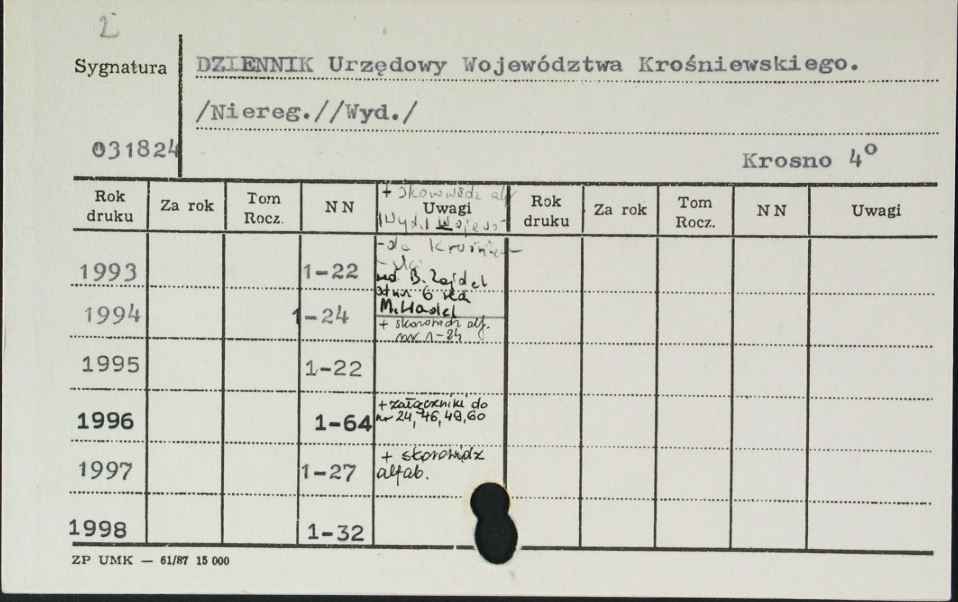 Sygnatura
DZIENNIK Urzędowy Województwa Krośniewskiego.
/Niereg.//Wyd./
031824
Krosno 4°
Rok druku Za rok Tom Rocz. NN Uwagi Rok druku Za rok Tom Rocz. NN Uwagi
+ skorowidz alf
1993 1-22
red B. Zajdel
od nr 6 red
1994 1-24
+ skorowidz alf.
nr 1-24
1995 1-22
1996 1-64 + załączniki do
nr 24, 46, 49, 60
1997 1-27 + skorowidz
alfab.
1998 1-32
ZP UMK — 61/87 15 000